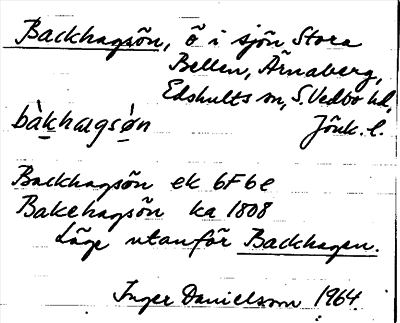 Backhagsön, ö i sjön Stora
Bellen, Ärnaberg,
Edshults sn, S. Vedbo hd,
Jönk. l.
bàkhagsø̀n
Backhagsön ek 6F6e
Bakehagsön ka 1808
Läge utanför Backhagen.
Inger Danielsson 1964